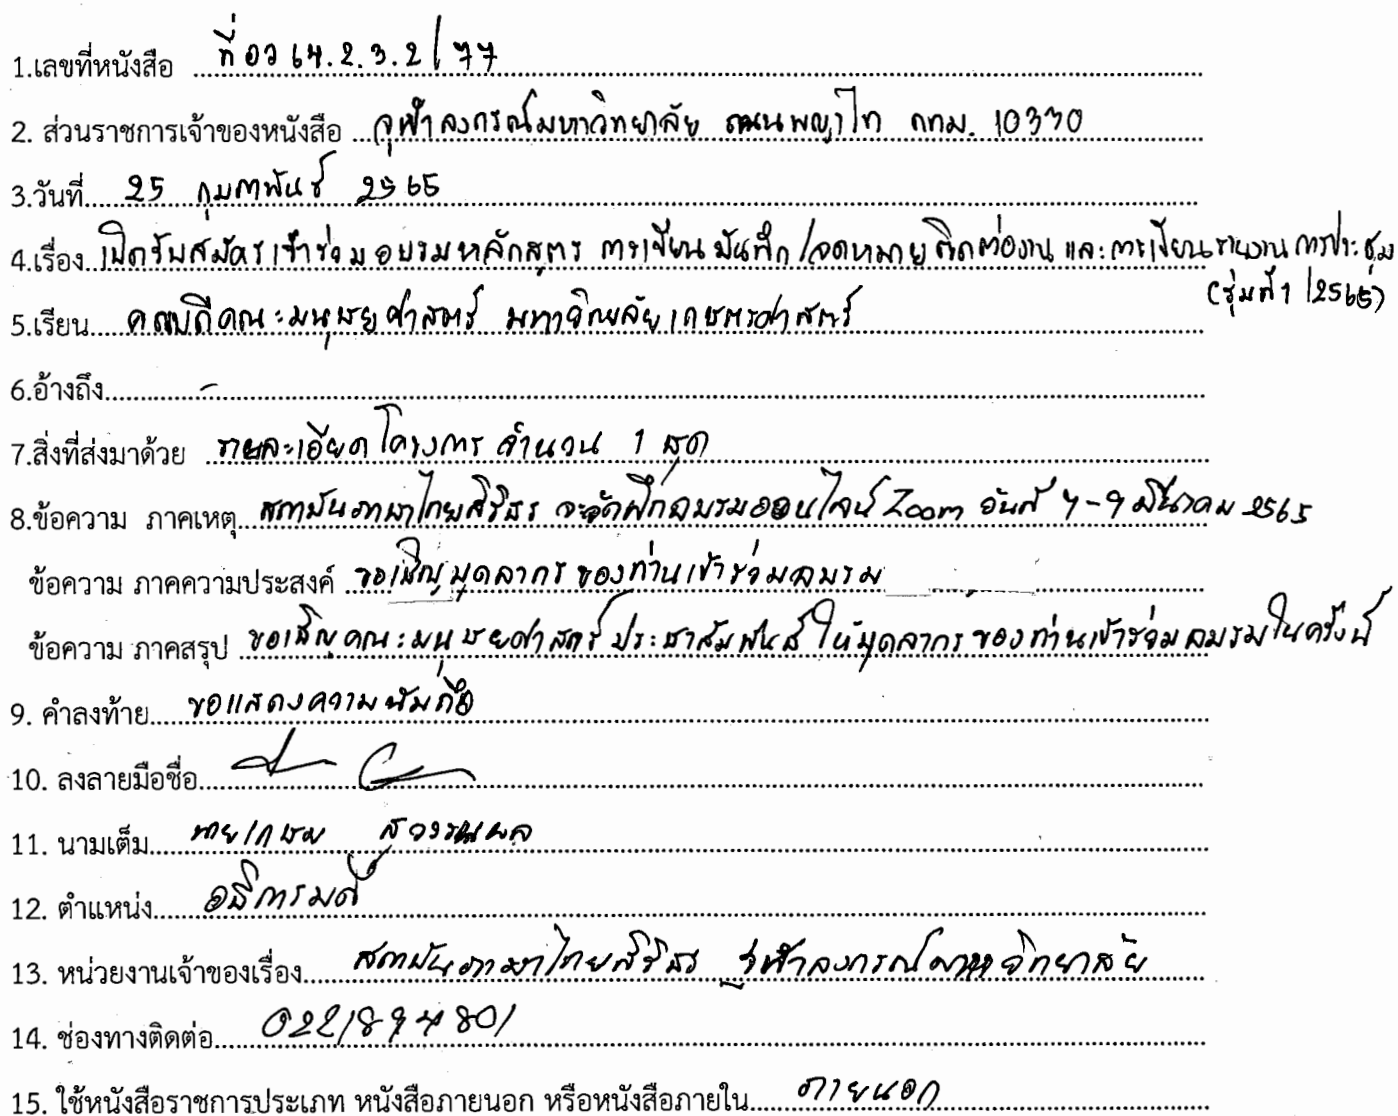 1.เลขที่หนังสือ ที่ อว 64.2.3.2/77
2. ส่วนราชการเจ้าของหนังสือ จุฬาลงกรณ์มหาวิทยาลัย ถนนพญาไท กทม. 10330
3.วันที่ 25 กุมภาพันธ์ 2565
4.เรื่อง เปิดรับสมัครเข้าร่วมอบรมหลักสูตร การเขียนบันทึก/จดหมายติดต่องาน และการเขียนรายงานการประชุม
(รุ่นที่ 1/2565)
5.เรียน คณบดีคณะมนุษยศาสตร์ มหาวิทยลัยเกษตรศาสตร์
6.อ้างถึง -
7.สิ่งที่ส่งมาด้วย รายละเอียดโครงการ จำนวน 1 ชุด
8.ข้อความ ภาคเหตุ สถาบันภาษาไทยสิรินธร จะจัดฝึกอบรมออนไลน์ Zoom วันที่ 7-9 มีนาคม 2565
ข้อความ ภาคความประสงค์ ขอเชิญบุคลากรของท่านเข้าร่วมอบรม
ข้อความ ภาคสรุป ขอเชิญคณะมนุษยศาสตร์ ประชาสัมพันธ์ให้บุคลากรของท่านเข้าร่วมอบรมในครั้งนี้
9. คำลงท้าย ขอแสดงความนับถือ
10. ลงลายมือชื่อ
11. นามเต็ม นายเกษม
12. ตำแหน่ง อธิการบดี
13. หน่วยงานเจ้าของเรื่อง สถาบันภาษาไทยสิรินธร จุฬาลงกรณ์มหาวิทยาลัย
14. ช่องทางติดต่อ 022189 4801
15. ใช้หนังสือราชการประเภท หนังสือภายนอก หรือหนังสือภายใน ภายนอก